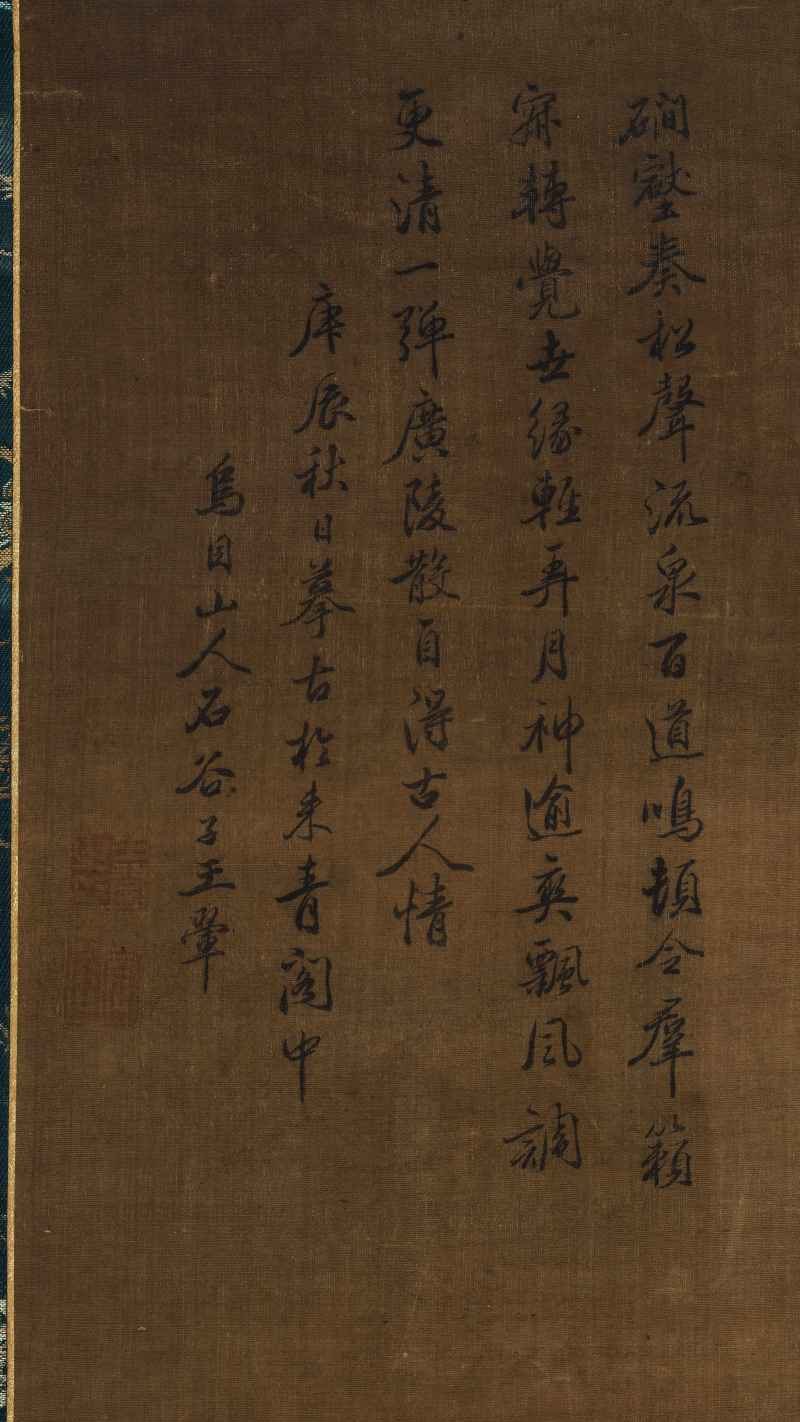 磵壑奏松聲流泉百道鳴頓令羣籟
寂轉覺世緣輕弄月神逾爽飄風調
更清一彈廣陵散自得古人情
庚辰秋日摹古於來青閣中
烏目山人石谷子王翬